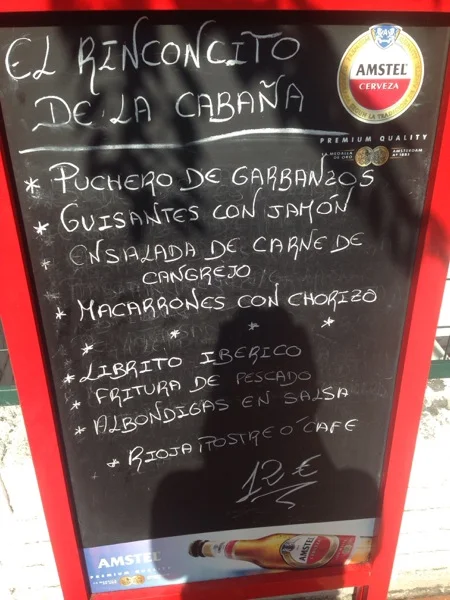 EL RINCONCITO
DE LA CABAÑA
AMSTEL
CERVEZA
PREMIUM QUALITY
LA MEDALLA
DE ORO
AMSTERDAM
Aº 1883
* PUCHERO DE GARBANZOS
* GUISANTES CON JAMÓN
* ENSALADA DE CARNE DE
CANGREJO
* MACARRONES CON CHORIZO
* * * *
* LIBRITO IBERICO
* FRITURA DE PESCADO
* ALBONDIGAS EN SALSA
* RIOJA, POSTRE O´ CAFE
12 €
AMSTEL
PREMIUM QUALITY
AMSTEL